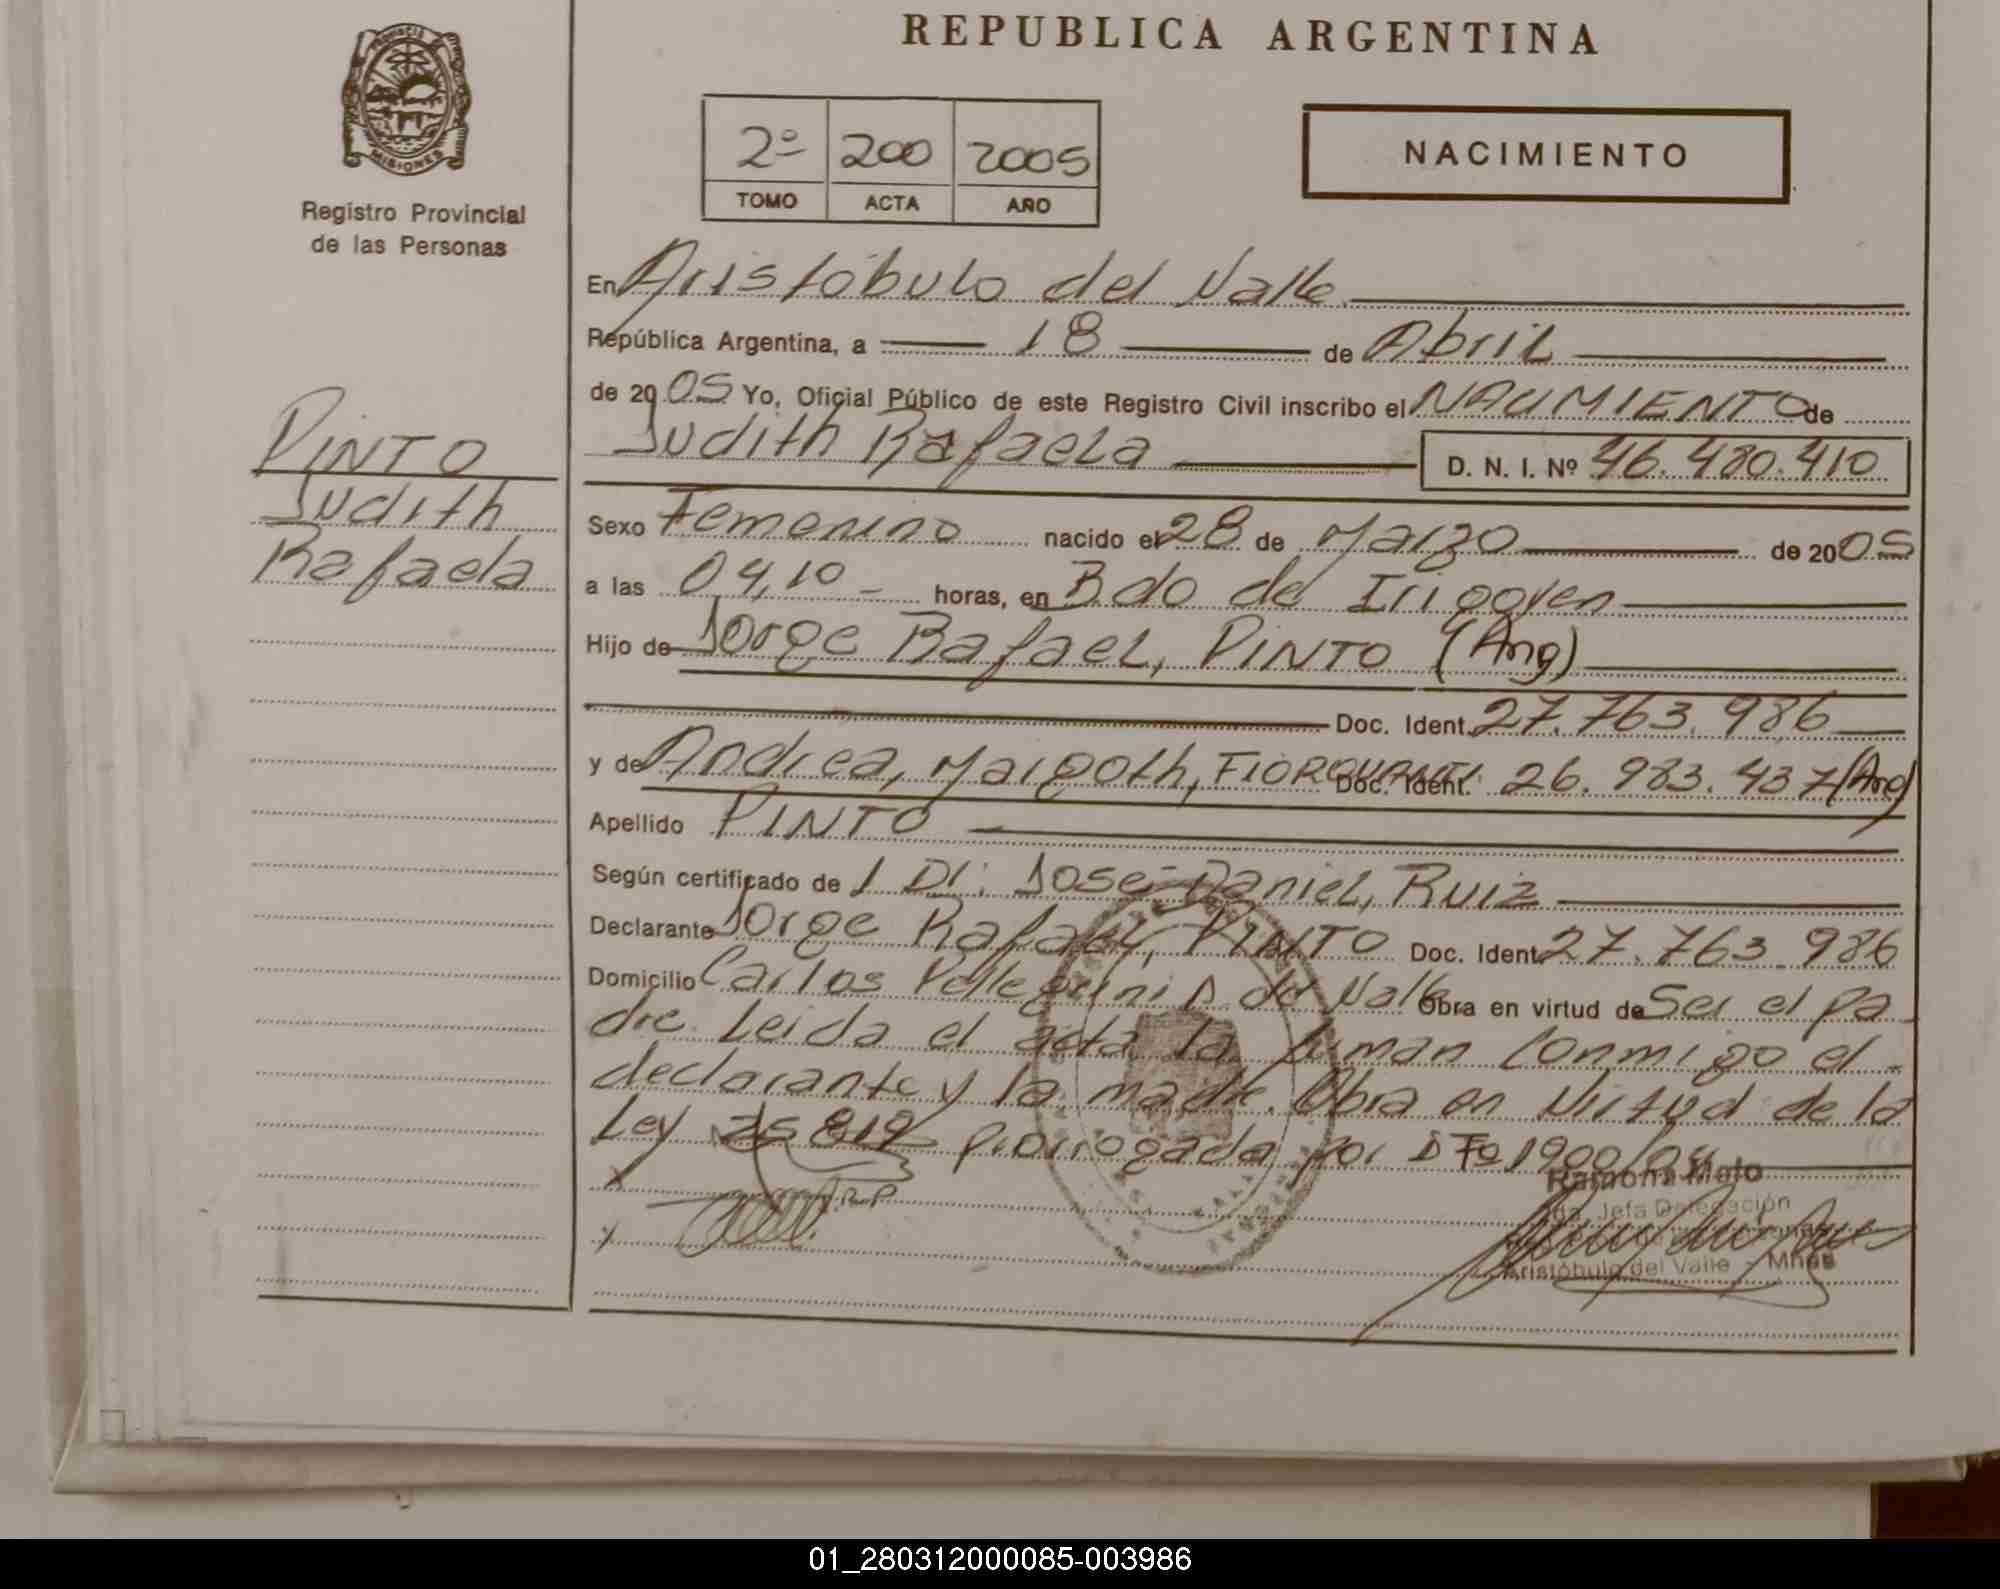 REPUBLICA ARGENTINA
PROVINCIA DE
MISIONES
Registro Provincial
de las Personas
2º 200 2005
TOMO ACTA AÑO
NACIMIENTO
PINTO
Judith
Rafaela
En Aristóbulo del Valle
República Argentina, a 18 de Abril
de 2005 Yo, Oficial Público de este Registro Civil inscribo el NACIMIENTO de
Judith Rafaela D. N. I. Nº 46.480.410
Sexo Femenino nacido el 28 de Marzo de 2005
a las 04,10 horas, en B. do de Irigoyen
Hijo de Jorge Rafael, PINTO (Arg)
Doc. Ident. 27.763.986
y de Andrea, Margoth, Doc. Ident. 26.983.437 (Arg)
Apellido PINTO
Según certificado de / Dr: José Daniel, Ruiz
Declarante Jorge Rafael, PINTO Doc. Ident. 27.763.986
Domicilio Carlos Pellegrini A. del Valle Obra en virtud de Ser el pa
dre. Leida el acta la firman Conmigo el
declarante y la madre. Obra en Virtud de la
Ley 25819 prorrogada por DTO 1900/04
Ramona Melo
Jefa Delegación
Aristóbulo del Valle - Mnes
01_280312000085-003986